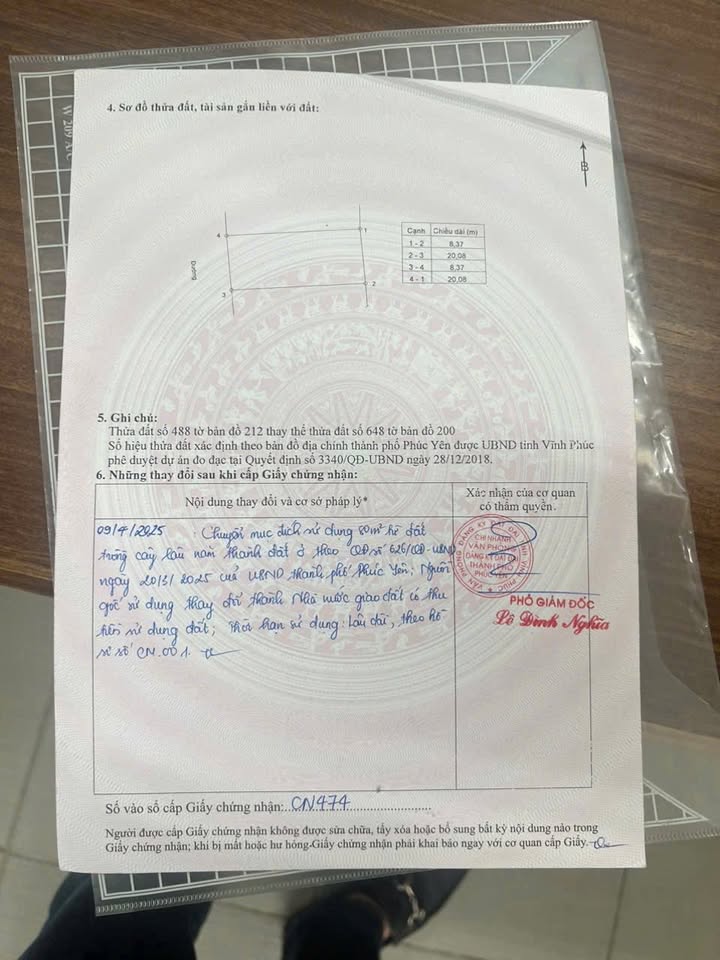 W 209 A/C
4. Sơ đồ thửa đất, tài sản gắn liền với đất:
B
4
1
Đường
3
2
Cạnh Chiều dài (m)
1 - 2 8,37
2 - 3 20,08
3 - 4 8,37
4 - 1 20,08
5. Ghi chú:
Thửa đất số 488 tờ bản đồ 212 thay thế thửa đất số 648 tờ bản đồ 200
Số hiệu thửa đất xác định theo bản đồ địa chính thành phố Phúc Yên được UBND tỉnh Vĩnh Phúc
phê duyệt dự án đo đạc tại Quyết định số 3340/QĐ-UBND ngày 28/12/2018.
6. Những thay đổi sau khi cấp Giấy chứng nhận:
Nội dung thay đổi và cơ sở pháp lý*
Xác nhận của cơ quan
có thẩm quyền.
09/4/2025 : Chuyển mục đích sử dụng 80m² từ đất
trồng cây lâu năm thành đất ở theo QĐ số 626/QĐ-UBND
ngày 20/3/2025 của UBND thành phố Phúc Yên; Nguồn
gốc sử dụng thay đổi thành Nhà nước giao đất có thu
tiền sử dụng đất; Thời hạn sử dụng: Lâu dài, theo hồ
sơ số CN.001.
VĂN PHÒNG ĐĂNG KÝ ĐẤT ĐAI TỈNH VĨNH PHÚC
CHI NHÁNH
VĂN PHÒNG
ĐĂNG KÝ ĐẤT ĐAI
THÀNH PHỐ
PHÚC YÊN
PHÓ GIÁM ĐỐC
Lê Đình Nghĩa
Số vào sổ cấp Giấy chứng nhận:..CN474......................
Người được cấp Giấy chứng nhận không được sửa chữa, tẩy xóa hoặc bổ sung bất kỳ nội dung nào trong
Giấy chứng nhận; khi bị mất hoặc hư hỏng Giấy chứng nhận phải khai báo ngay với cơ quan cấp Giấy.